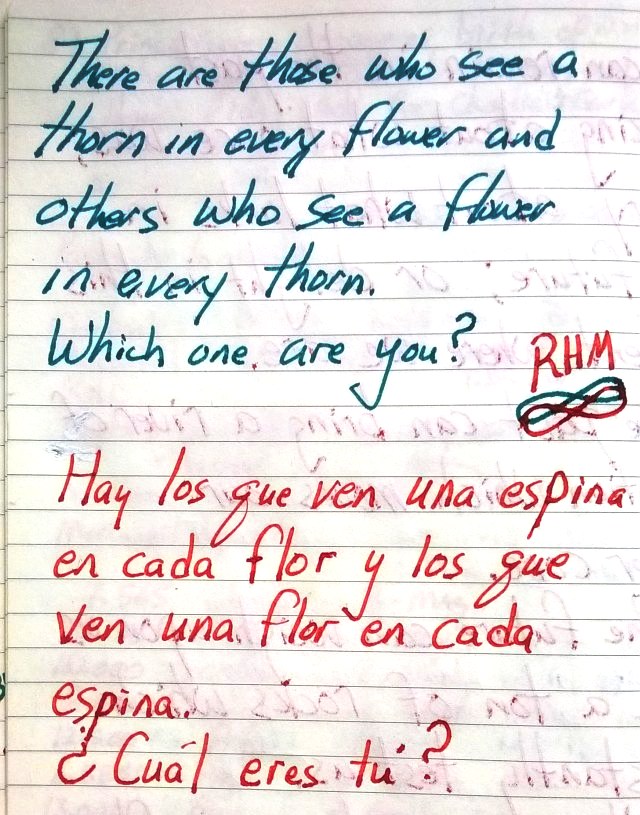 There are those who see a
thorn in every flower and
others who see a flower
in every thorn.
Which one are you?
RHM
Hay los que ven una espina
en cada flor y los que
ven una flor en cada
espina.
¿Cuál eres tú?